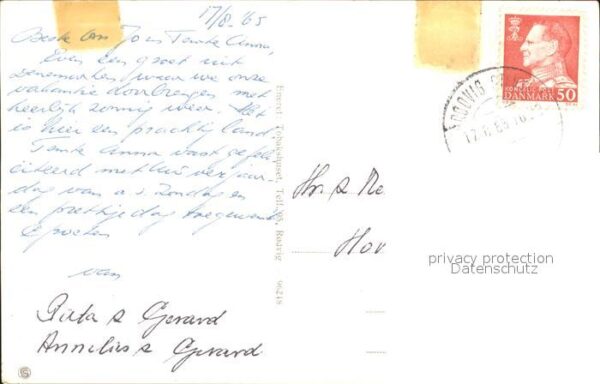 17/8-'65
Beste Om Jo en Tante Anna,
Even een groet uit
Denemarken waar we onze
vakantie doorbrengen met
heerlijk zonnig weer. Het
is hier een prachtig land
Tante Anna vast gefeli-
citeerd met Uw verjaar-
dag van a.s. Zondag en
een prettige dag toegewenst
Groeten
van
Puta & Gerard
Annelies & Gerard
Eneret Tobakshuset, Tellf. 95, Rødvig 96248
Hr. & Me
Hov
KONGELIG POST
DANMARK 50
RØDVIG STEVNS
17.8.65.16
privacy protection
Datenschutz